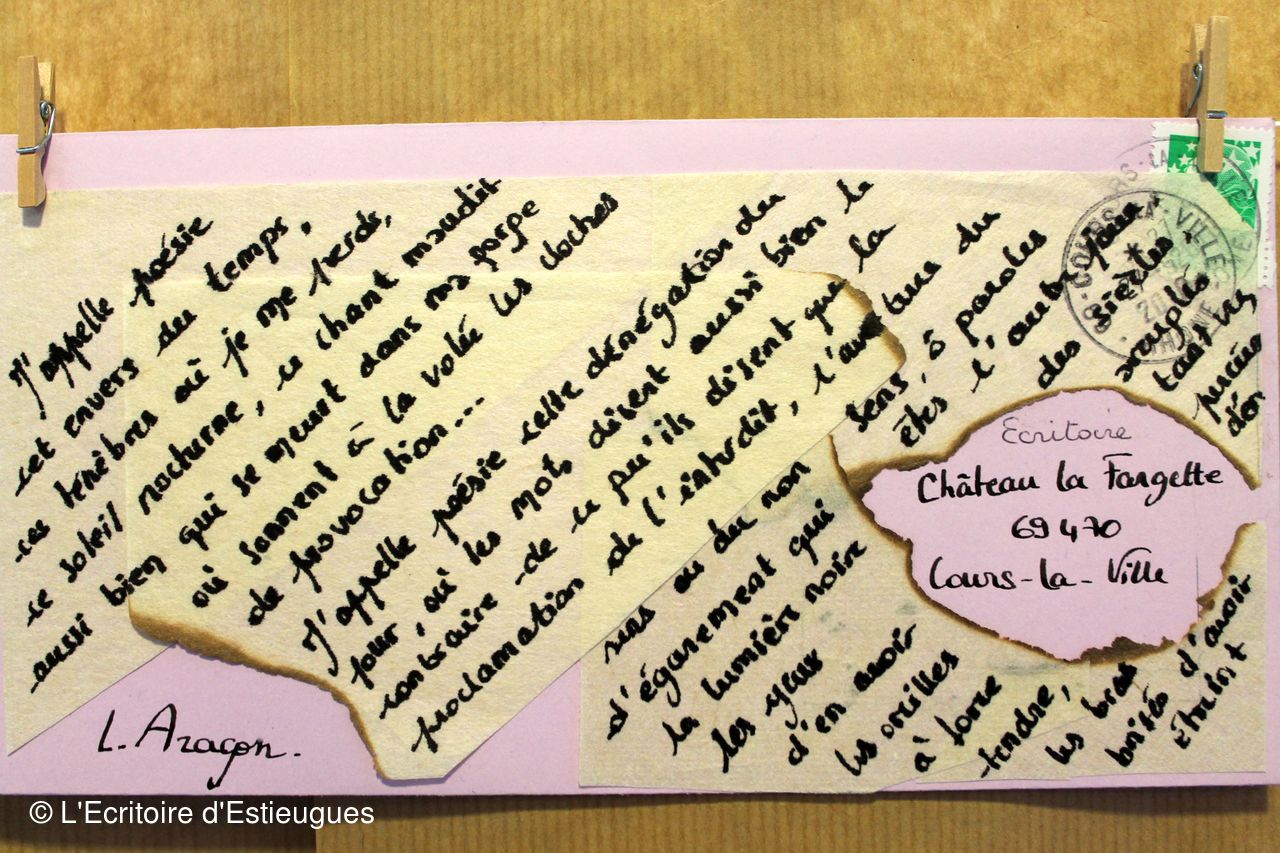 J'appelle poésie
cet envers du temps,
ces ténèbres où je me perds,
ce soleil nocturne, ce chant maudit
aussi bien qui se meurt dans ma gorpe
où sonnent à la volée les cloches
de provocation...
J'appelle poésie cette dénégation du
jour, où les mots disent aussi bien le
contraire de ce qu'ils disent que la
proclamation de l'interdit, l'aventure du
sens ou du non sens, ô paroles
d'égarement qui êtes l'autre jour,
la lumière noire des siècles,
les yeux aveuglés
d'en avoir tant vu,
les oreilles percées
à force d'en
tendre,
les bras
brisés d'avoir
étreint
L. Aragon.
Ecritoire
Château la Fargette
69470
Cours-la-Ville
COURS-LA-VILLE
RHONE
© L'Ecritoire d'Estieugues